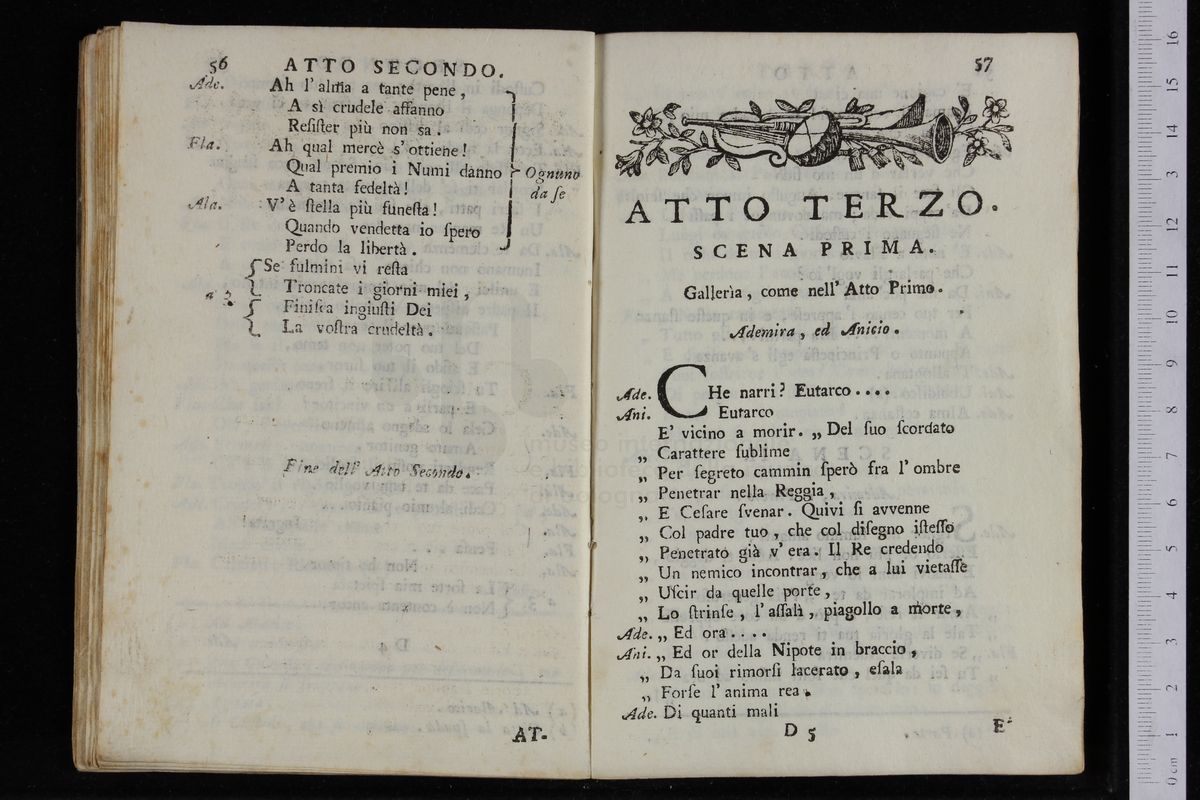 56 ATTO SECONDO.
Ade. Ah l'alma a tante pene,
A sì crudele affanno
Reſiſter più non sa!
Fla. Ah qual mercè s'ottiene!
Qual premio i Numi danno
Ognuno
A tanta fedeltà!
da ſe
Ala. V'è ſtella più funeſta!
Quando vendetta io ſpero
Perdo la libertà.
Se fulmini vi reſta
a 3. Troncate i giorni miei,
Finiſca ingiuſti Dei
La voſtra crudeltà.
Fine dell' Atto Secondo.
AT-
57
ATTO TERZO.
SCENA PRIMA.
Gallerìa, come nell' Atto Primo.
Ademira, ed Anicio.
Ade. CHe narri? Eutarco....
Ani. Eutarco
E' vicino a morir. „ Del ſuo ſcordato
„ Carattere ſublime
„ Per ſegreto cammin ſperò fra l' ombre
„ Penetrar nella Reggia,
„ E Ceſare ſvenar. Quivi ſi avvenne
„ Col padre tuo, che col diſegno iſteſſo
„ Penetrato già v' era. Il Re credendo
„ Un nemico incontrar, che a lui vietaſſe
„ Uſcir da quelle porte,
„ Lo ſtrinſe, l' aſſalì, piagollo a morte,
Ade. „ Ed ora....
Ani. „ Ed or della Nipote in braccio,
„ Da ſuoi rimorſi lacerato, eſala
„ Forſe l' anima rea.
Ade. Di quanti mali
D 5
E'
0 cm 1 2 3 4 5 6 7 8 9 10 11 12 13 14 15 16